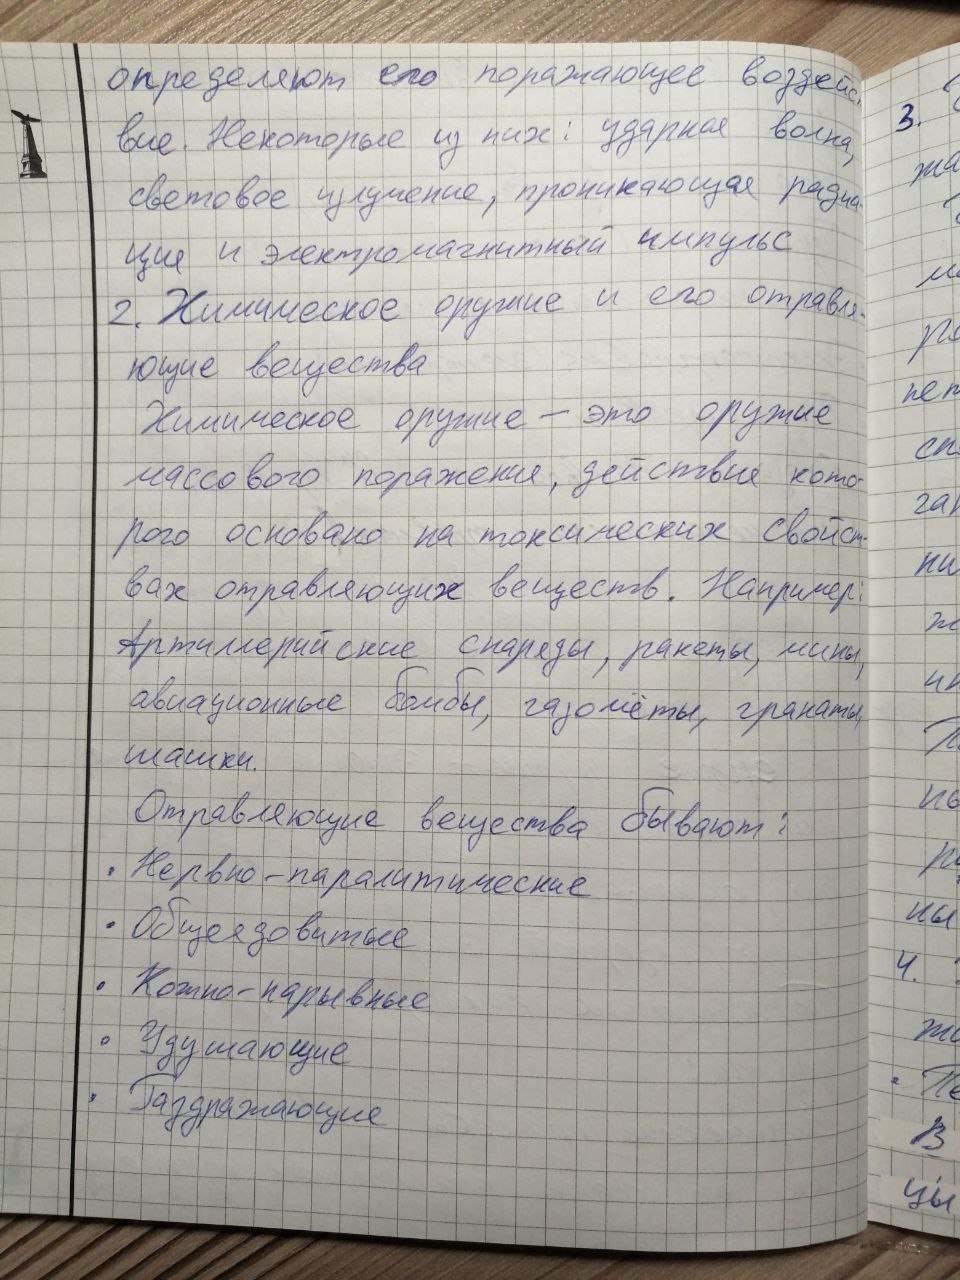 определяют его поражающее воздейст
вие. Некоторые из них: ударная волна,
световое излучение, проникающая радиа-
ция и электромагнитный импульс
2. Химическое оружие и его отравля-
ющие вещества
Химическое оружие – это оружие
массового поражения, действие кото-
рого основано на токсических свойст-
вах отравляющих веществ. Например:
Артиллерийские снаряды, ракеты, мины,
авиационные бомбы, газомёты, гранаты,
шашки.
Отравляющие вещества бывают:
• Нервно-паралитические
• Общеядовитые
• Кожно-нарывные
• Удушающие
• Раздражающие
3.
жа
ма
пет
сп
ган
ни
ж
ны
4.
• Пе
В
цы